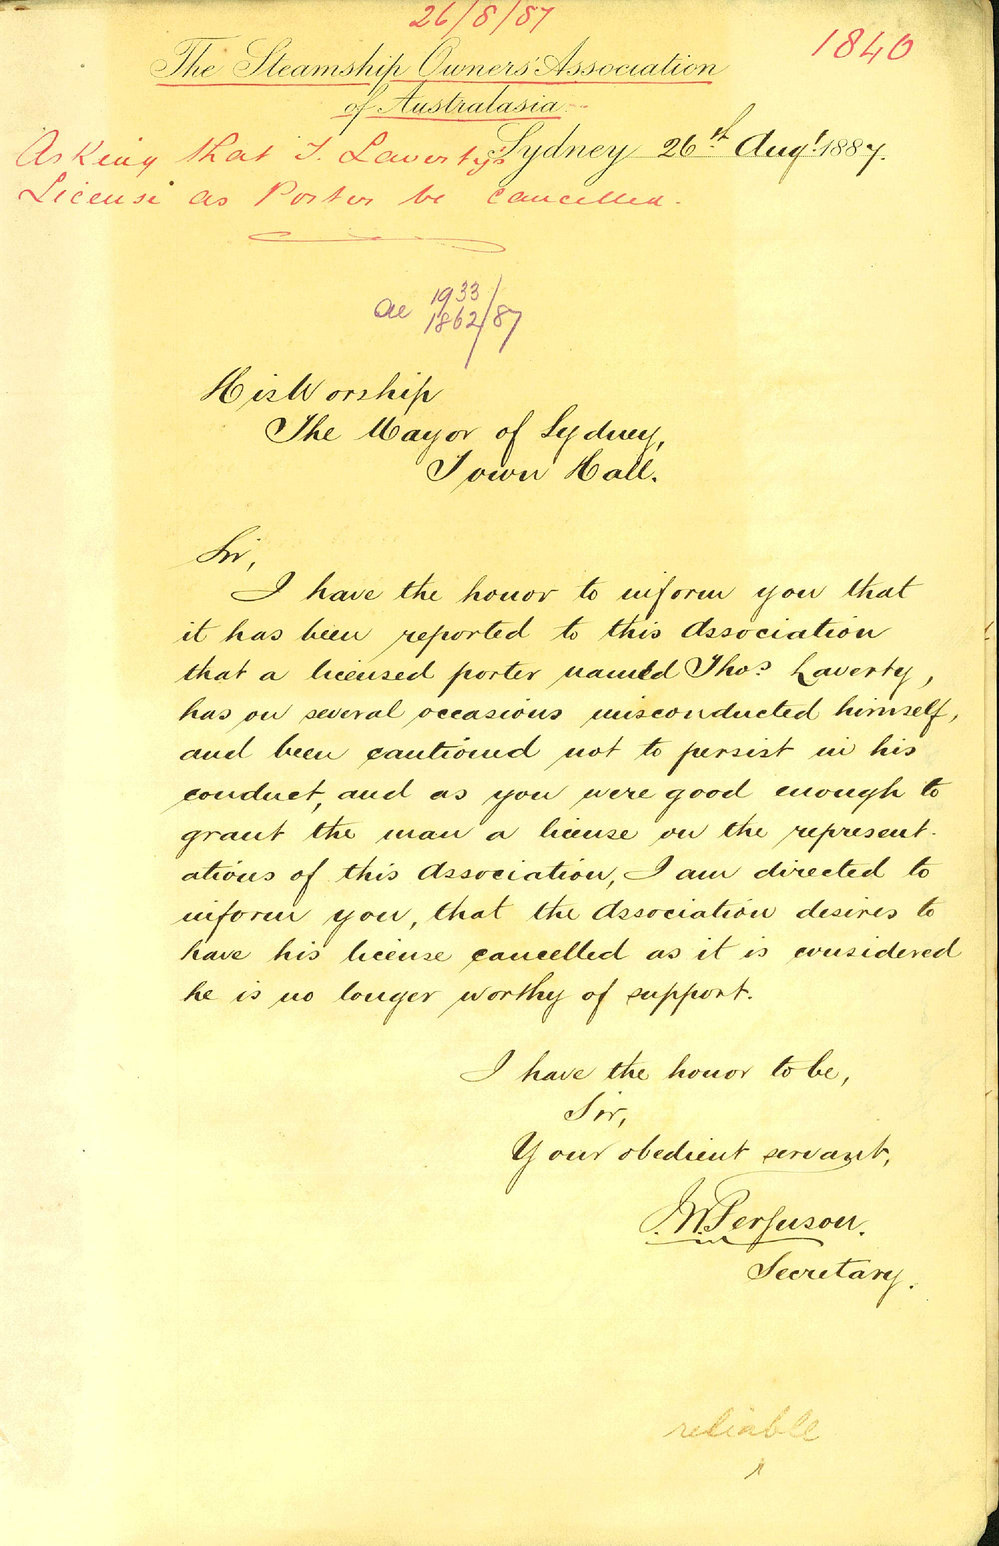 26/8/87
1840
The Steamship Owners' Association
of Australasia.
Sydney 26th Augt. 1887.
Asking that T. Laverty's
License as Porter be cancelled.
1933/
1862/87
His Worship
The Mayor of Sydney,
Town Hall.
Sir,
I have the honor to inform you that
it has been reported to this Association
that a licensed porter named Thos. Laverty,
has on several occasions misconducted himself,
and been cautioned not to persist in his
conduct, and as you were good enough to
grant the man a license on the represent-
ations of this Association, I am directed to
inform you, that the Association desires to
have his license cancelled as it is considered
he is no longer worthy of support.
I have the honor to be,
Sir,
Your obedient servant,
J.W. Ferguson.
Secretary.
reliable